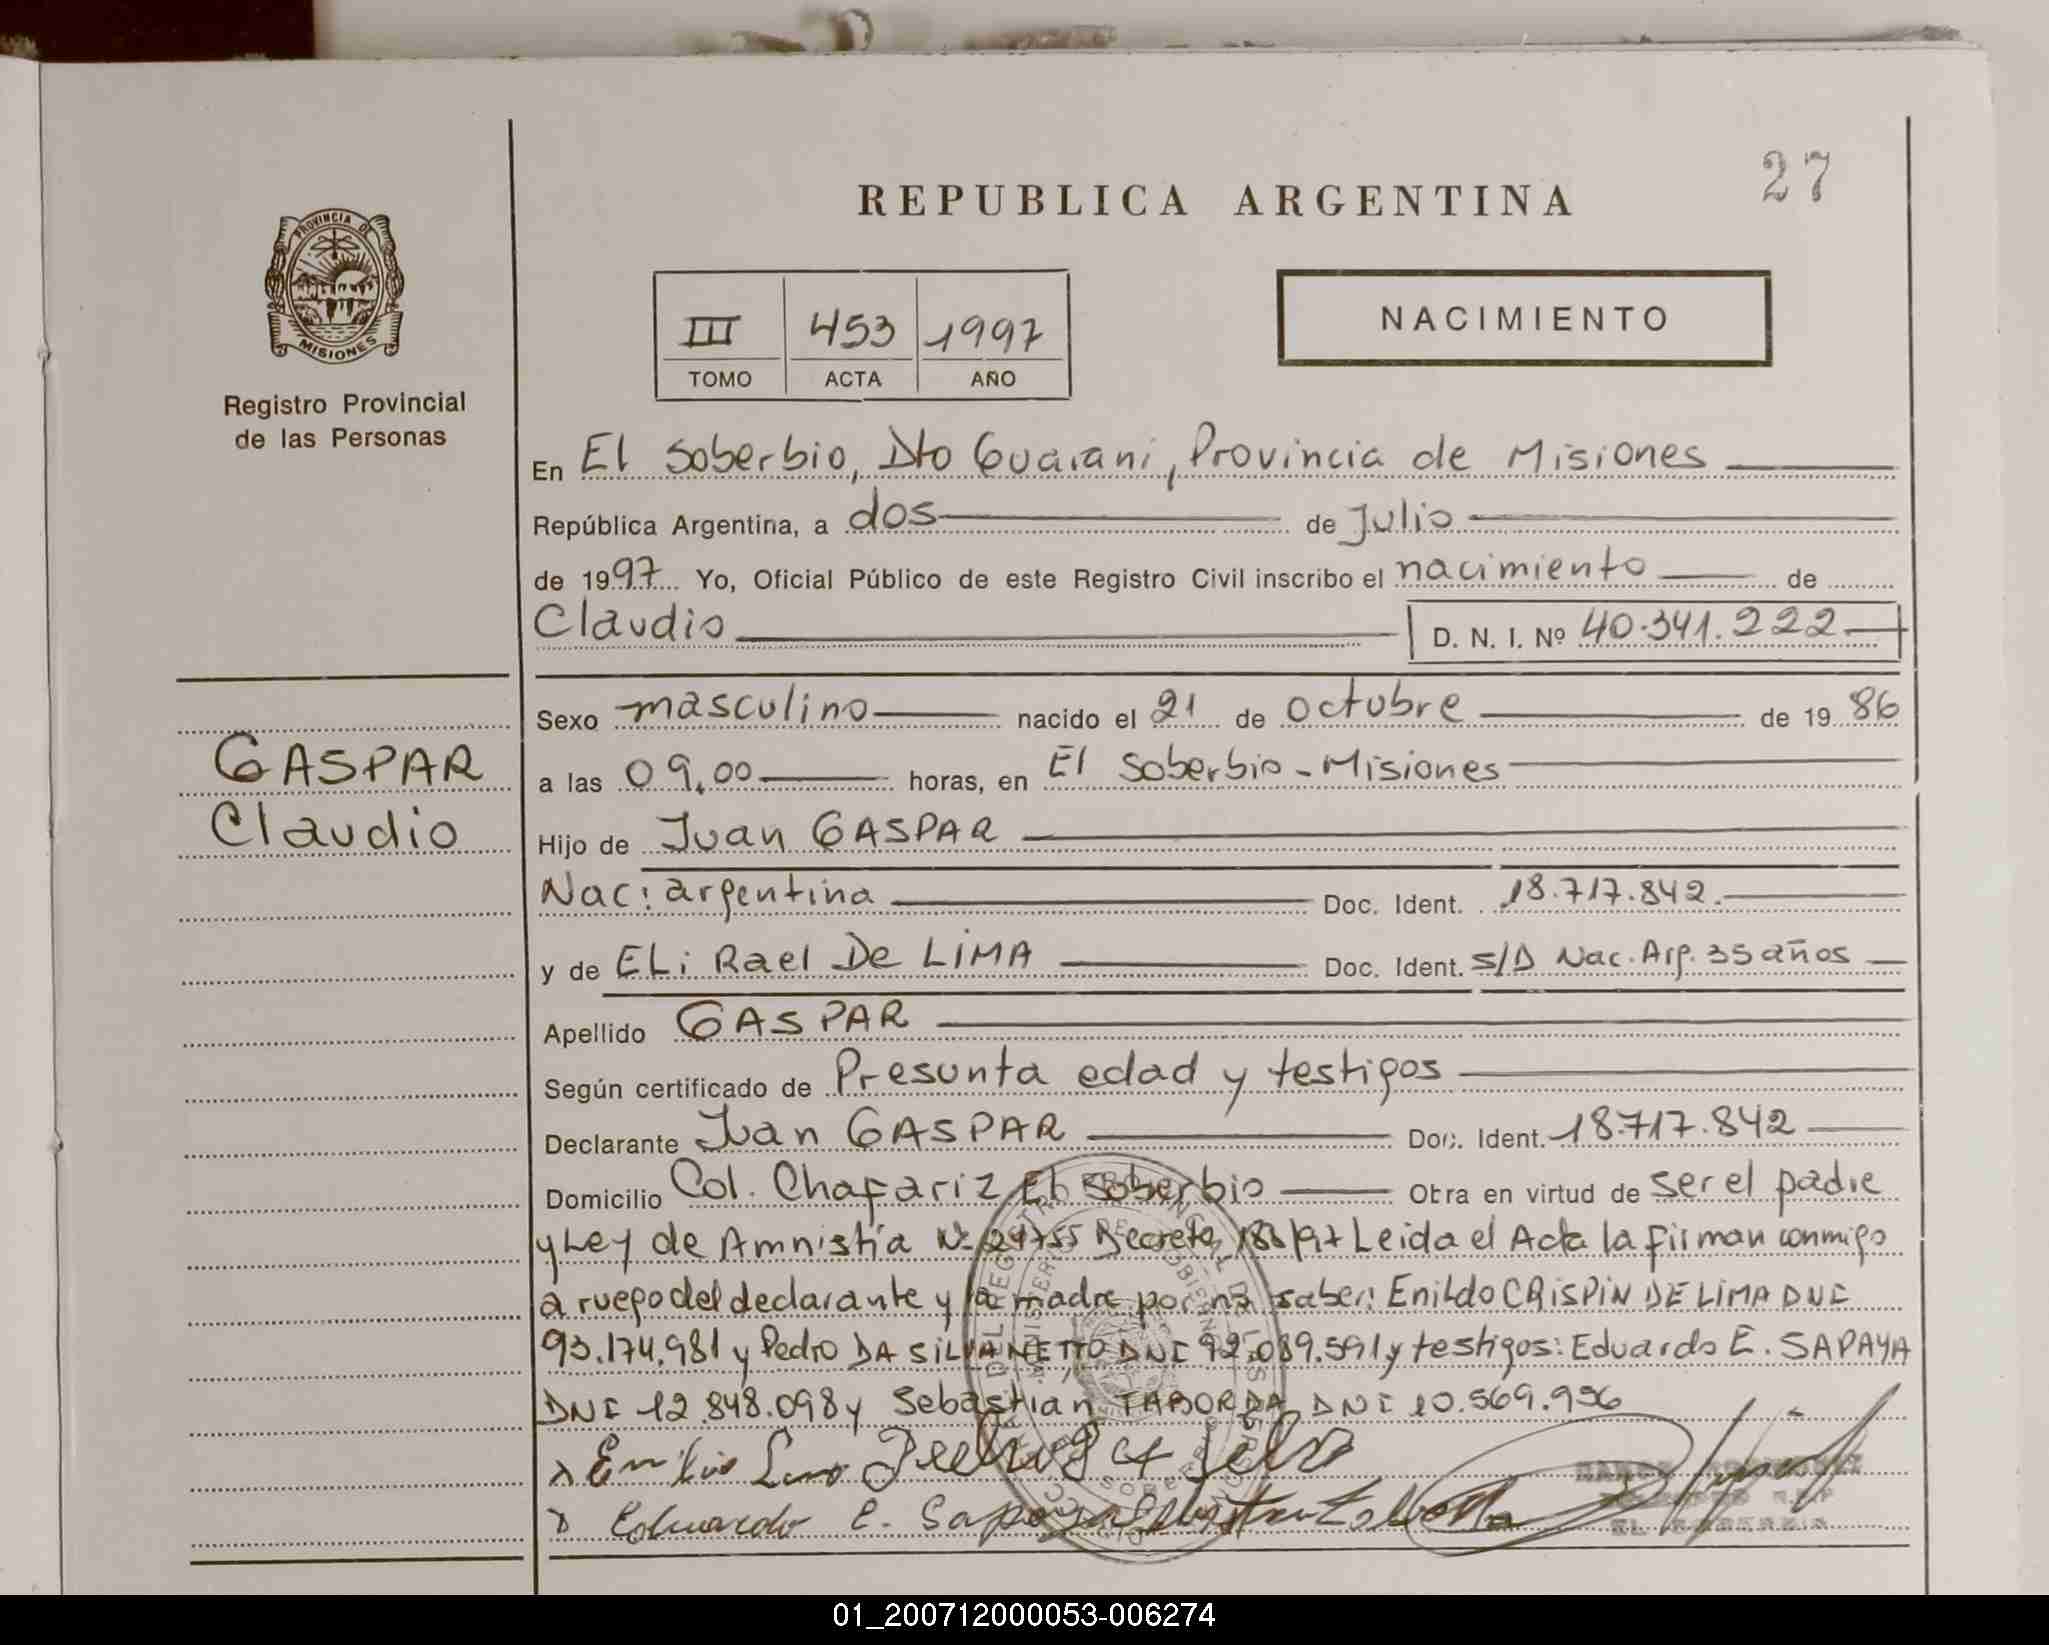 27
REPUBLICA ARGENTINA
PROVINCIA DE
MISIONES
Registro Provincial
de las Personas
III 453 1997
TOMO ACTA AÑO
NACIMIENTO
En El Soberbio, Dto Guarani, Provincia de Misiones
República Argentina, a dos de Julio
de 1997 Yo, Oficial Público de este Registro Civil inscribo el nacimiento de
Claudio D. N. I. Nº 40.341.222
Sexo masculino nacido el 21 de octubre de 19 86
GASPAR
Claudio
a las 09,00 horas, en El Soberbio - Misiones
Hijo de Juan GASPAR
Nac: argentina Doc. Ident. 18.717.842.
y de ELi Rael De LiMA Doc. Ident. S/D Nac. Arg. 35 años
Apellido GASPAR
Según certificado de Presunta edad y testigos
Declarante Juan GASPAR Doc. Ident. 18.717.842
Domicilio Col. Chafariz El Soberbio Obra en virtud de ser el padre
y Ley de Amnistía Nº 24755 Decreto 183/97 Leida el Acta la firman conmigo
a ruego del declarante y la madre por no saber: Enildo CRiSPiN DE LiMA DNI
93.174.981 y Pedro DA SiLVA NETTO DNI 92.089.591 y testigos: Eduardo E. SAPAYA
DNI 12.848.098 y Sebastian TABORDA DNI 10.569.956
Eduardo E. Sapaya
EL SOBERBIO
01_200712000053-006274